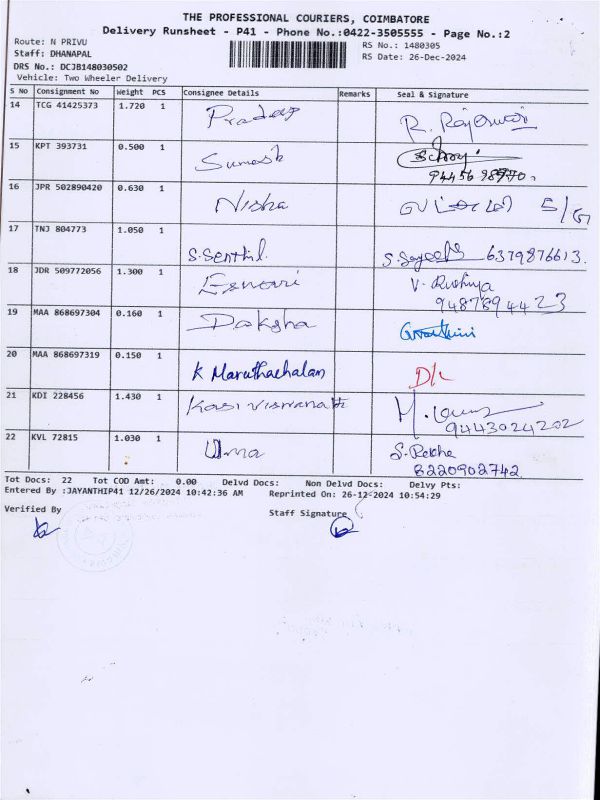 THE PROFESSIONAL COURIERS, COIMBATORE
Delivery Runsheet - P41 - Phone No.:0422-3505555 - Page No.:2
Route: N PRIVU
RS No.: 1480305
Staff: DHANAPAL
RS Date: 26-Dec-2024
DRS No.: DCJB148030502
Vehicle: Two Wheeler Delivery
S No Consignment No Weight PCS Consignee Details Remarks Seal & Signature
14 TCG 41425373 1.720 1 Pradeep R. Rajeswari
15 KPT 393731 0.500 1 Sumesh
16 JPR 502890420 0.630 1 Nisha
17 TNJ 804773 1.050 1 S.Senthil. 6379876613.
18 JDR 509772056 1.300 1 Eswari
9487894423
19 MAA 868697304 0.160 1 Daksha
20 MAA 868697319 0.150 1 K Maruthachalam D/L
21 KDI 228456 1.430 1 Kasi viswanath
9443024202
22 KVL 72815 1.030 1 Uma S. Rekha
8220902742
Tot Docs: 22 Tot COD Amt: 0.00 Delvd Docs: Non Delvd Docs: Delvy Pts:
Entered By :JAYANTHIP41 12/26/2024 10:42:36 AM Reprinted On: 26-12-2024 10:54:29
Verified By
Staff Signature